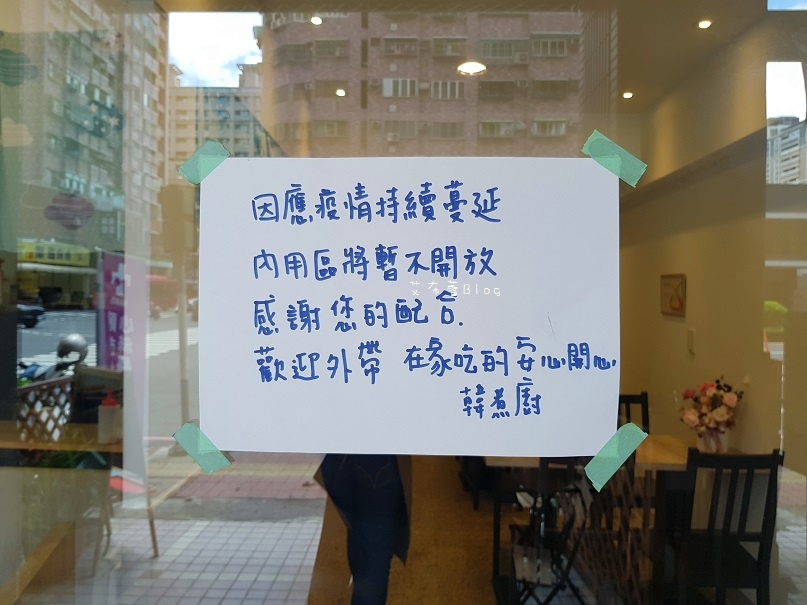 因應疫情持續蔓延
內用區將暫不開放
感謝您的配合.
歡迎外帶 在家吃的安心開心
韓煮廚